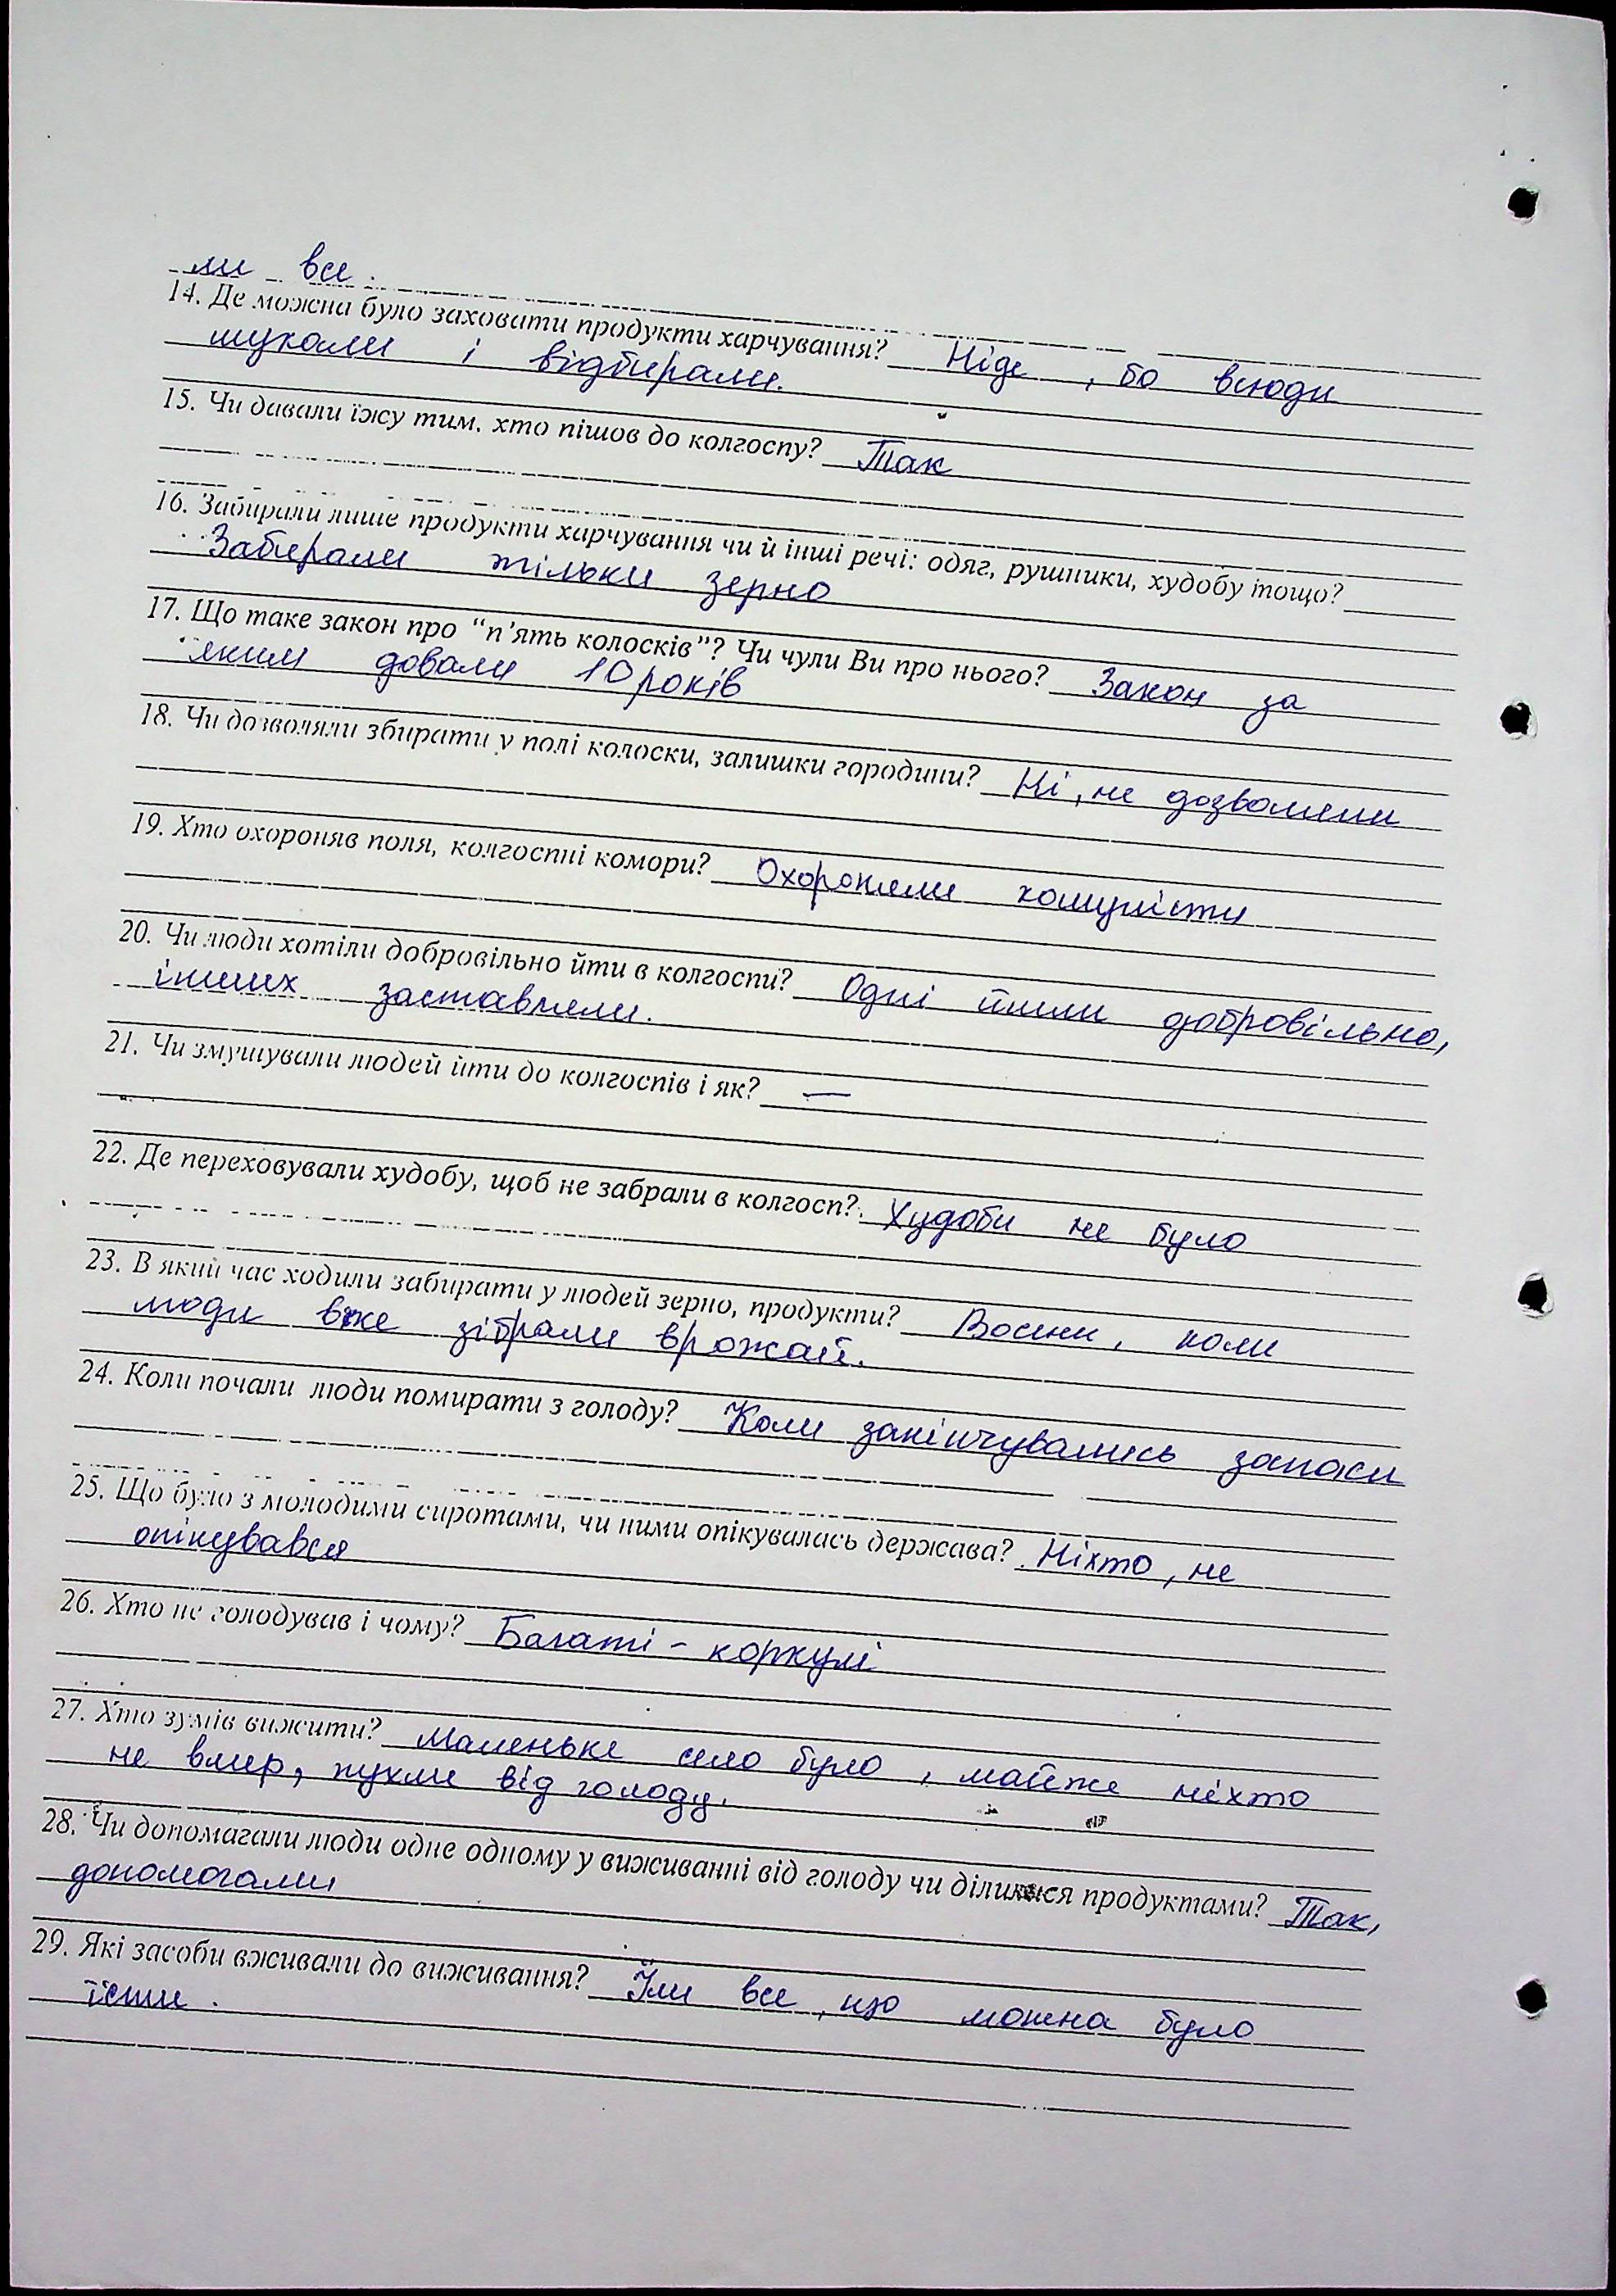 ли все.
14. Де можна було заховати продукти харчування? Ніде, бо всюди
шукали і відбирали.
15. Чи давали їжу тим, хто пішов до колгоспу? Так
16. Забирали лише продукти харчування чи й інші речі: одяг, рушники, худобу тощо?
Забирали тільки зерно
17. Що таке закон про "п'ять колосків"? Чи чули Ви про нього? Закон за
яким довали 10 років
18. Чи дозволяли збирати у полі колоски, залишки городини? Ні, не дозволяли
19. Хто охороняв поля, колгоспні комори? Охороняли комуністи
20. Чи люди хотіли добровільно йти в колгоспи? Одні йшли добровільно,
інших заставляли.
21. Чи змушували людей йти до колгоспів і як? —
22. Де переховували худобу, щоб не забрали в колгосп? Худоби не було
23. В який час ходили забирати у людей зерно, продукти? Восени, коли
люди вже зібрали врожай.
24. Коли почали люди помирати з голоду? Коли закінчувались запаси
25. Що було з молодими сиротами, чи ними опікувалась держава? Ніхто, не
опікувався
26. Хто не голодував і чому? Багаті - коркулі
27. Хто зумів вижити? Маленьке село було, майже ніхто
не вмер, пухли від голоду.
28. Чи допомагали люди одне одному у виживанні від голоду чи ділилися продуктами? Так,
допомогали
29. Які засоби вживали до виживання? Їли все, що можна було
їсти.